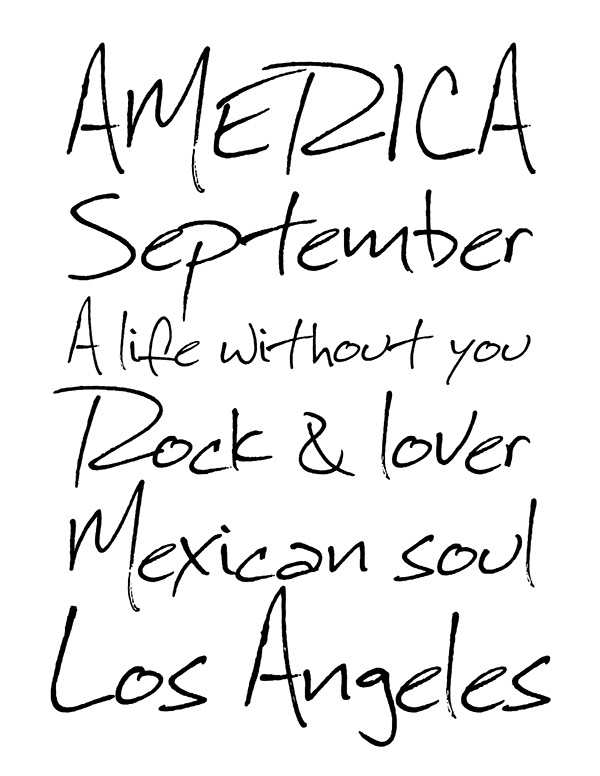 AMERICA
September
A life without you
Rock & lover
Mexican soul
Los Angeles